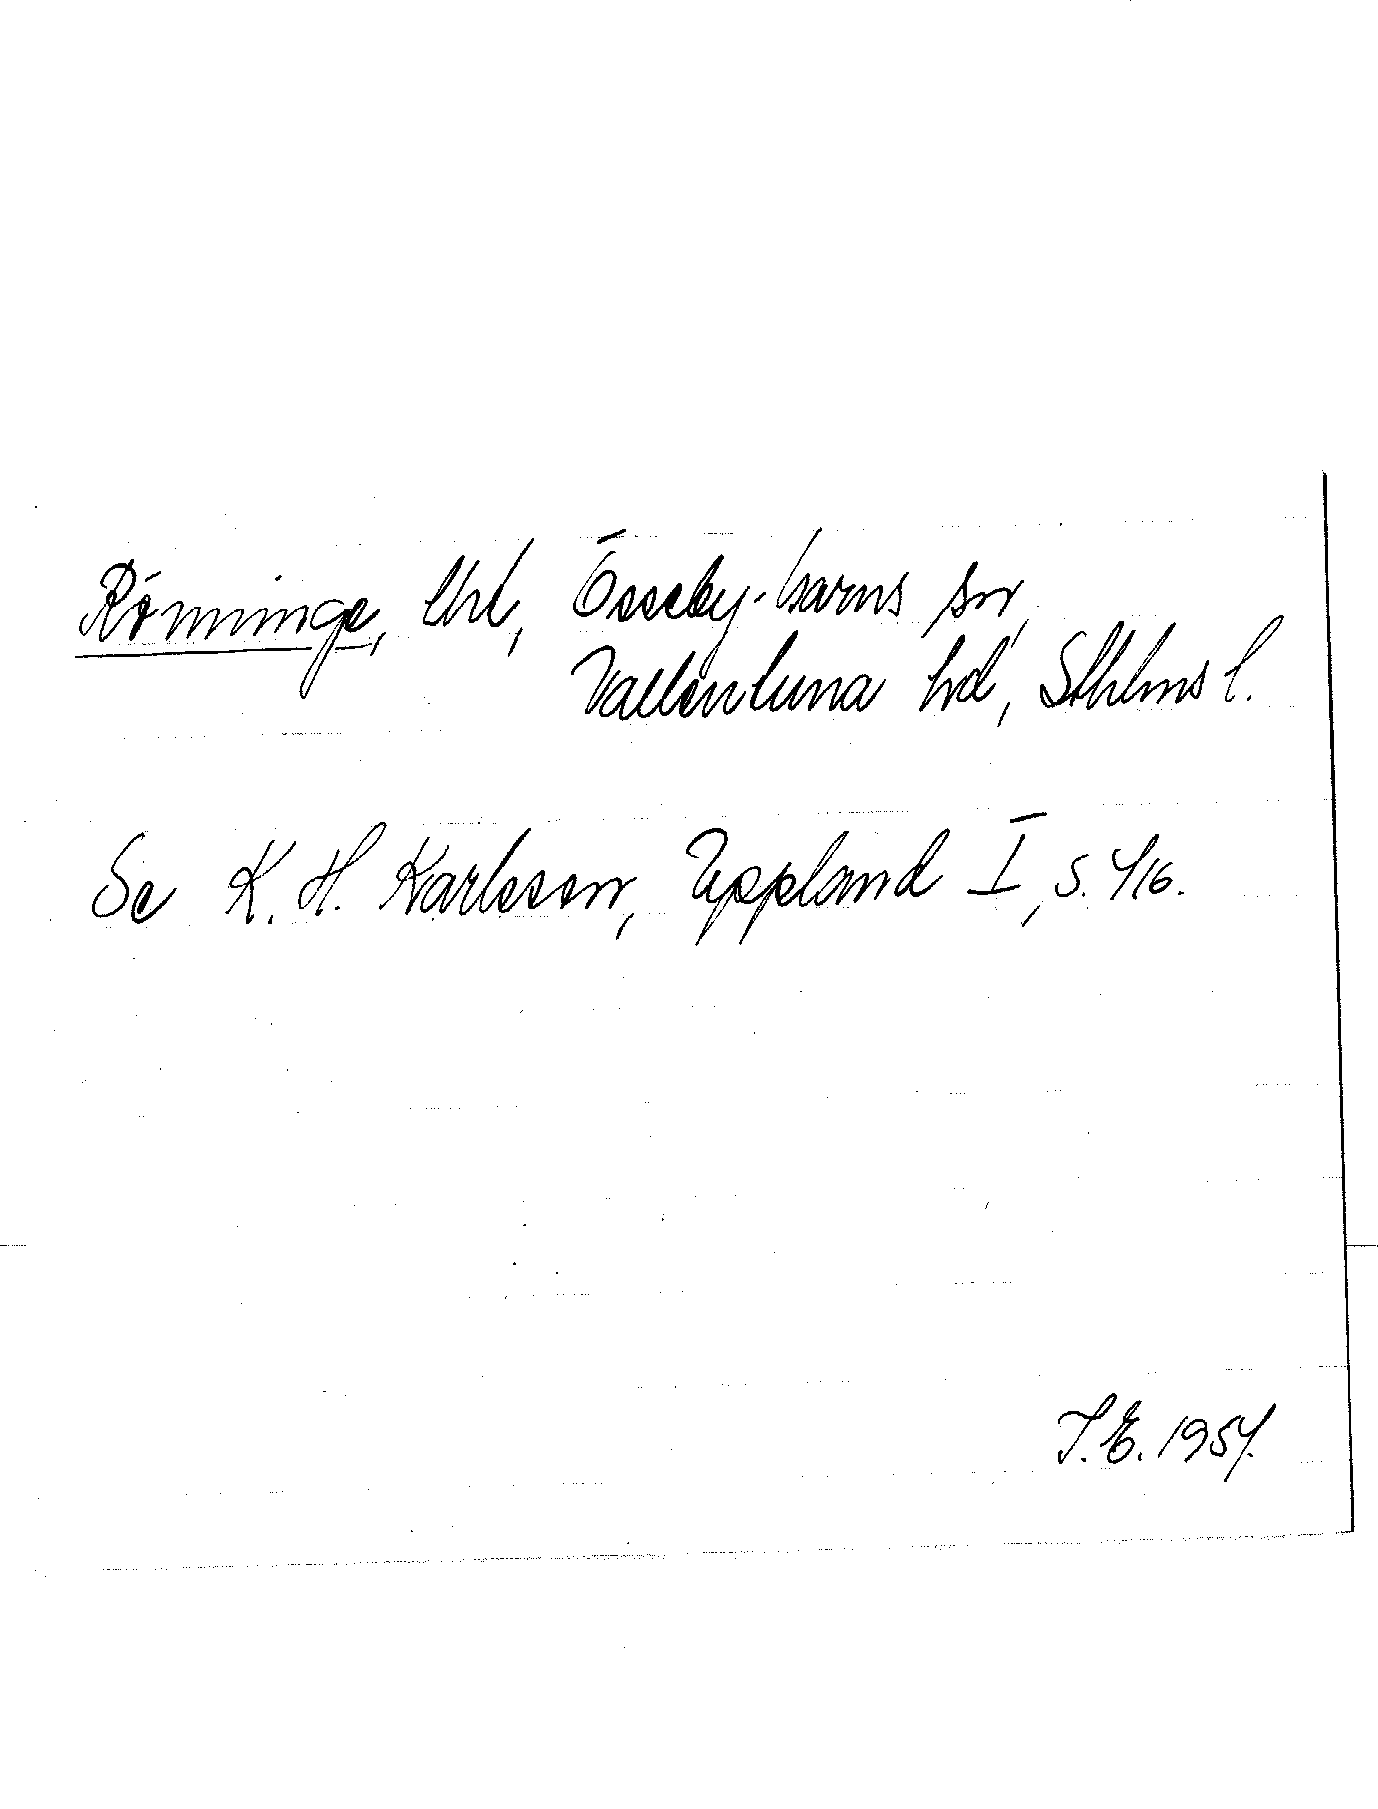 Rönninge, Chl, Össeby-Garns sn,
Vallentuna hd, Sthlms l.
Se K. H. Karlsson, Uppland I, s. 416.
I.E. 1954.